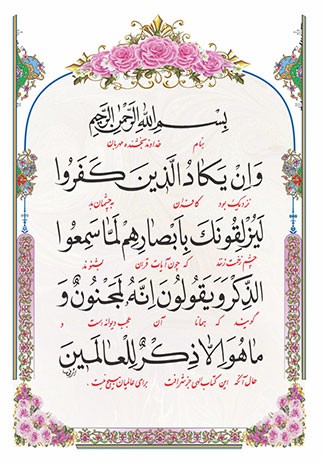 بِسْمِ اللهِ الرَّحْمنِ الرَّحِیمِ
بنام خداوند بخشنده مهربان
وَاِنْ یَکادُ الَّذینَ کَفَرُوا
نزدیک بود کافران به چشمان بد
لَیُزْلِقُونَکَ بِاَبْصارِهِمْ لَمّا سَمِعُوا
چشم زخمت زنند که چون آیات قرآن بشنوند
الذِّکْرَ وَیَقُولُونَ اِنَّهُ لَمَجْنُونٌ وَ
گویند که همانا آن عجب دیوانه است و
ما هُوَ اِلاّ ذِکْرٌ لِلْعالَمینَ
حال آنکه این کتاب الهی جز برای عالمیان هیچ نیست